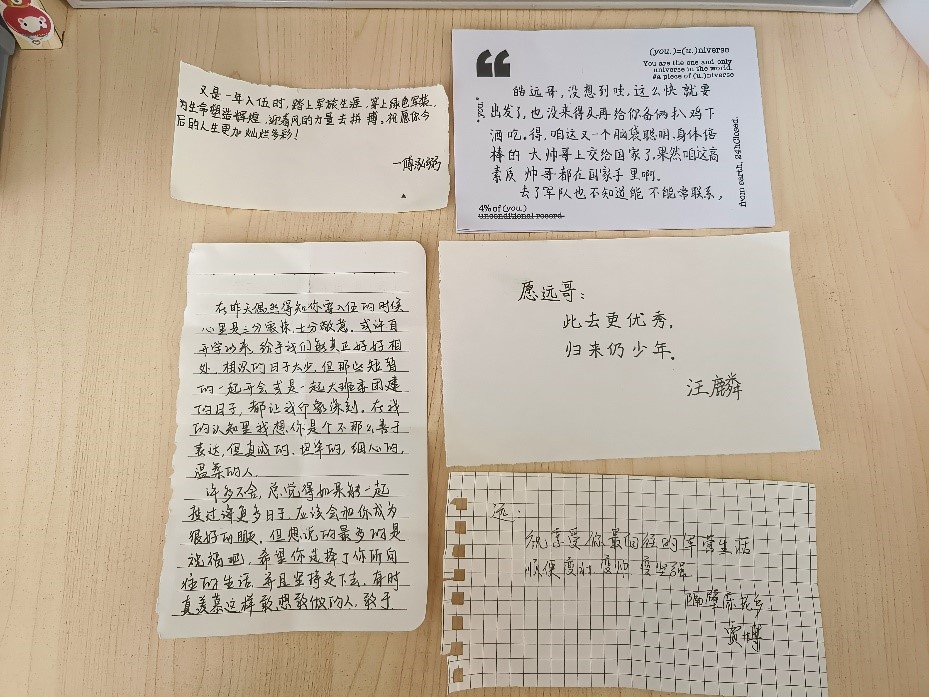 又是一年入伍时，踏上军旅生涯，穿上绿色军装，
为生命塑造辉煌，迎着风的力量去拼搏。祝愿你今
后的人生更加灿烂多彩！
一傅泓
(you.)=(u.)niverse
You are the one and only
universe in the world.
#a piece of (u.)niverse
的远哥，没想到哇，这么快就要
出发了，也没来得及再给你备俩扒鸡下
酒吃。得，咱这又一个脑袋聪明，身体倍
棒的大帅哥上交给国家了，果然咱这高
素质帅哥都在国家手里啊。
去了军队也不知道能不能常联系，
you.
from earth, 24hClosed.
4% of (you.)
unconditional record
在昨天偶然得知你要入伍的时候
心里是三分震惊，七分敬意。或许自
开学以来，给予我们能真正好好相
处，相识的日子太少，但那些短暂
的一起开会或是一起大班委团建
的日子，都让我印象深刻。在我
的认知里我想你是个不那么善于
表达，但真诚的，坦率的，细心的，
温柔的人。
许多不舍，总觉得如果能一起
度过诸更多日子，应该会和你成为
很好的朋友。但想说的最多的是
祝福吧，希望你选择了你所向
往的生活，并且坚持走下去，有时
真羡慕这样敢想敢做的人，敢于
愿远哥：
此去更优秀，
归来仍少年。
汪麟
远：
就享受你最向往的军营生活
顺便变壮 变帅 变坚强
隔壁
贾博